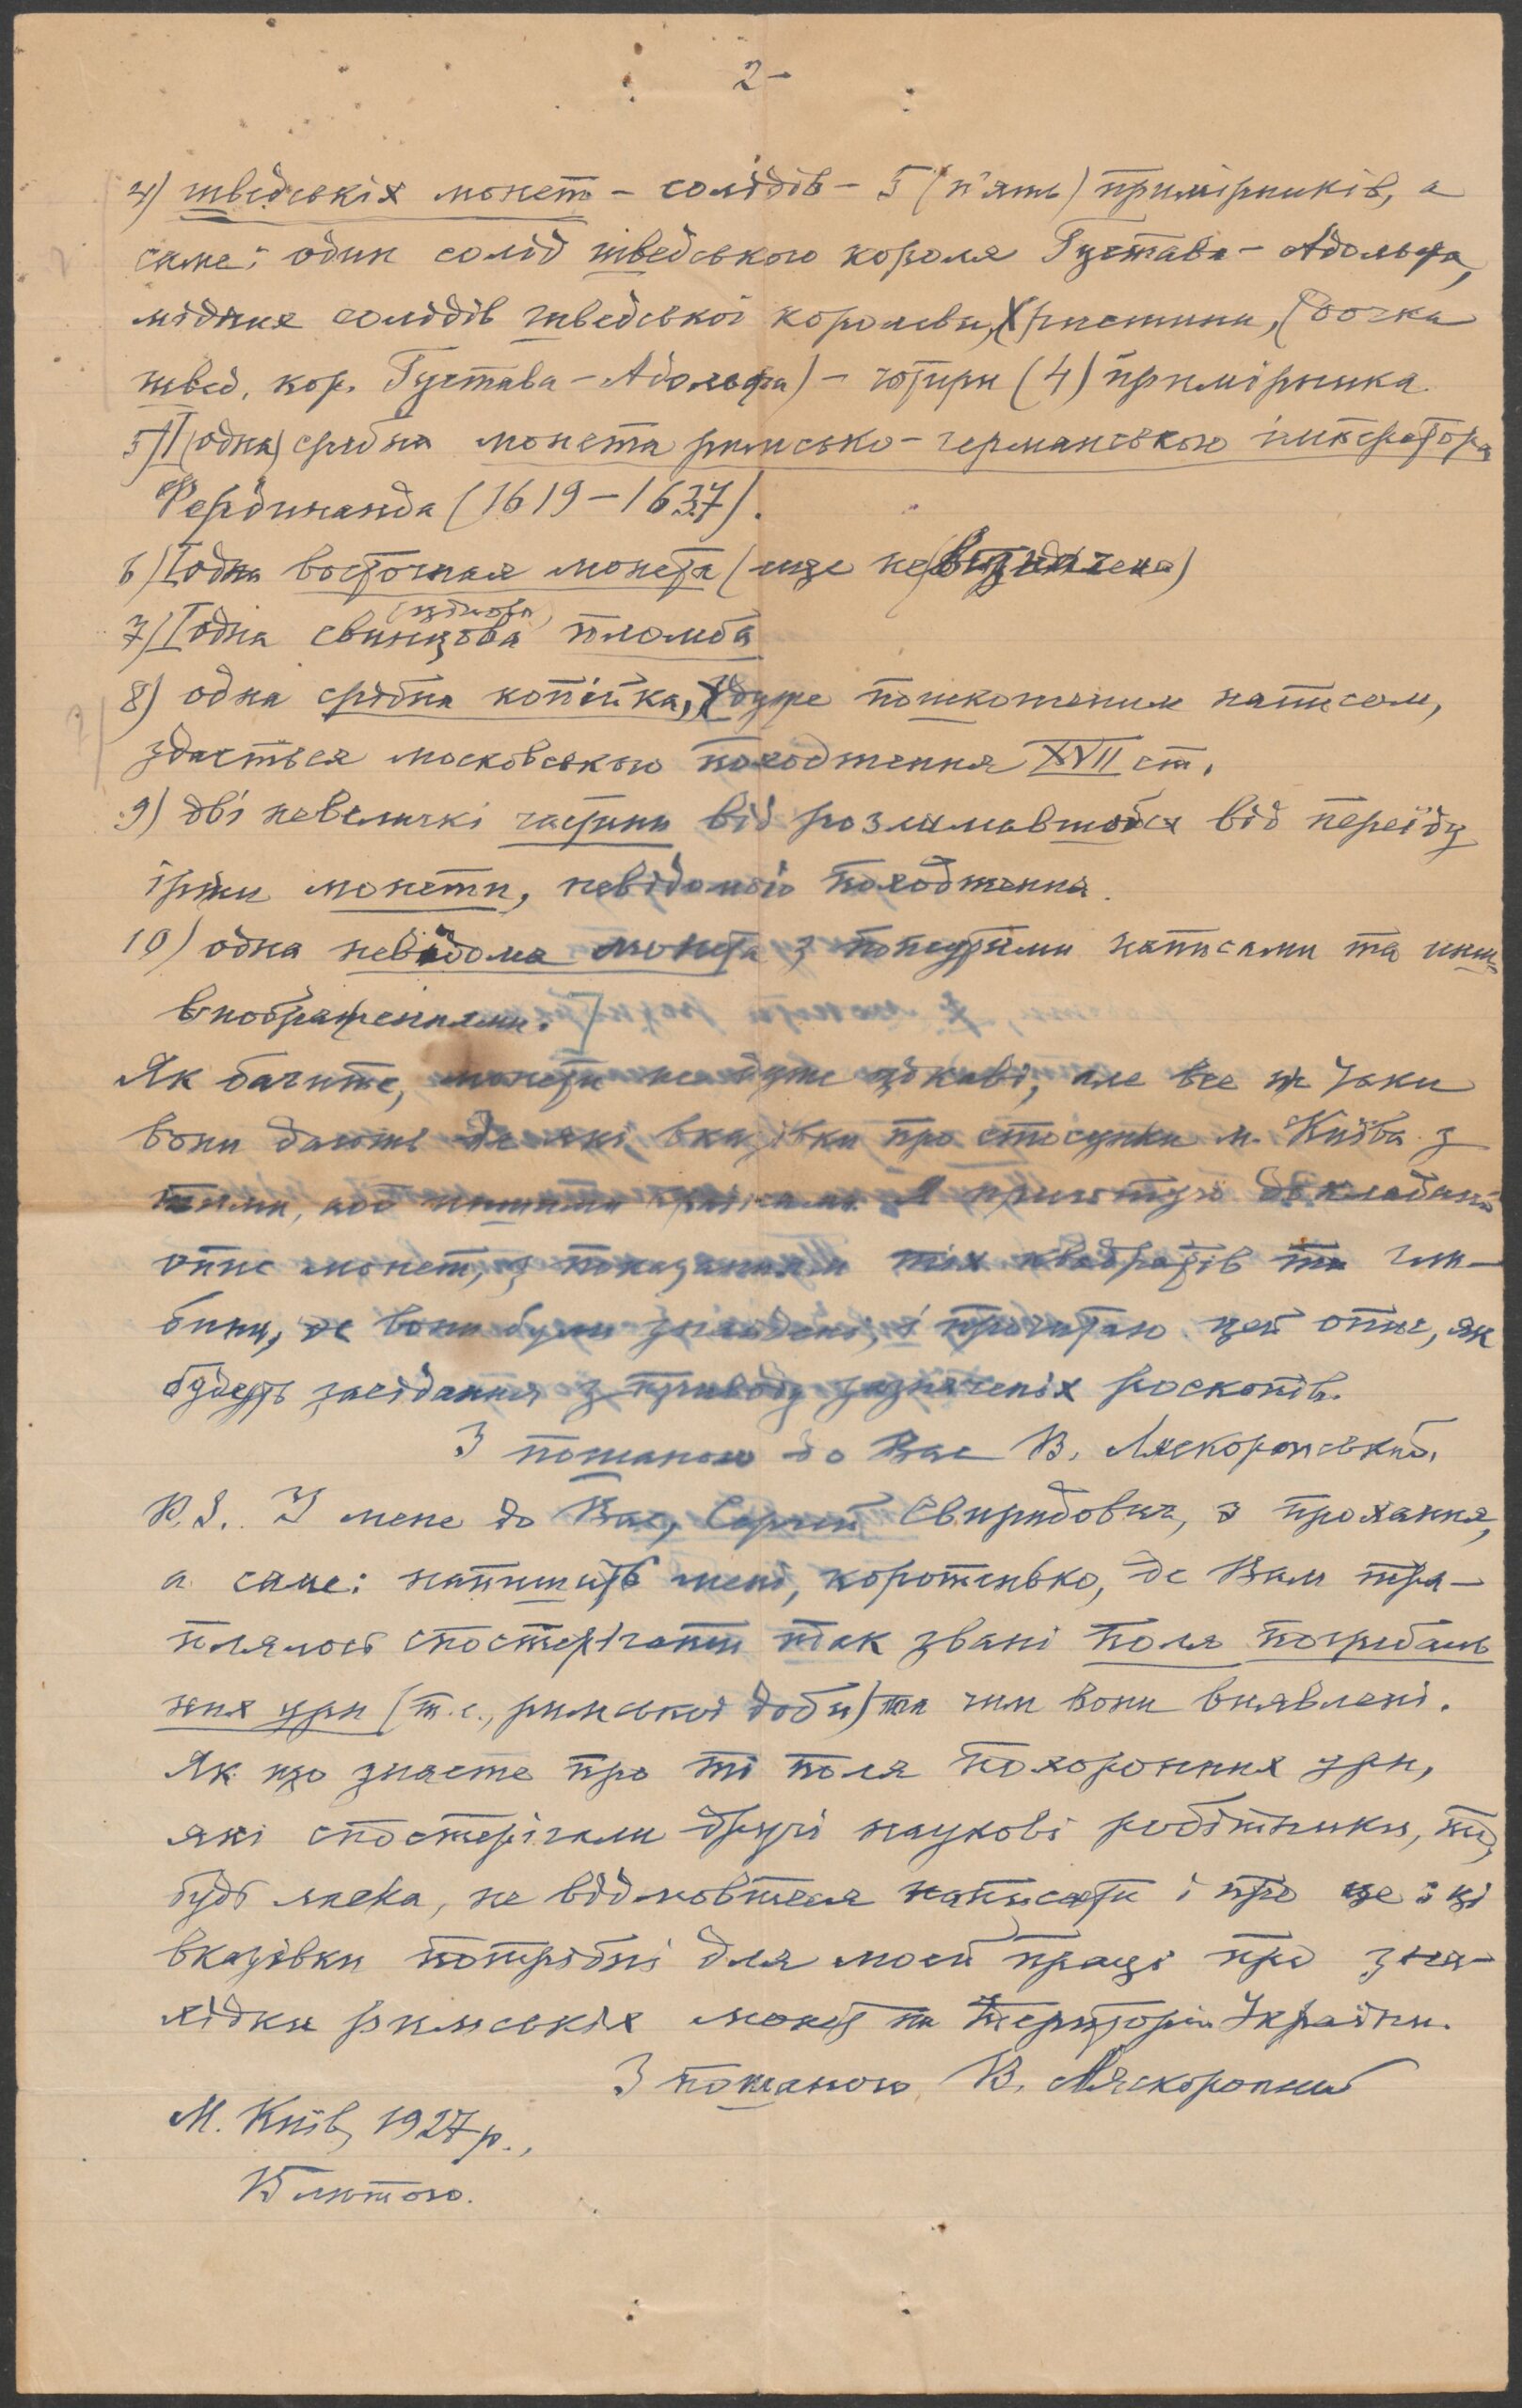 2-
4) шведськіх монет - солідів - 5 (п'ять) примірників, а
саме: один солід шведського короля Густава - Адольфа,
мідних солідів шведської королеви, Христини, (дочка
швед. кор. Густава - Адольфа) - чотири (4) примірника.
5) 1 (одна) срібна монета римсько - германського імператора
Фердинанда (1619-1637).
6) 1 одна восточная монета (ище невизначена)
7) 1 одна свинцова (цінова) пломба
8) одна срібна копійка, з дуже пошкоженим написом,
здається московського походження XVII ст.
9) дві невеличкі частини від розламавшойся від переїду
іржи монети, невідомого походження.
10) одна невідома монета з попсутіми написами та инш.
виображеннями.
Як бачите, монети не дуже цікаві, але все ж таки
вони дають де які вказівки про стосунки м. Київа з
тими, або иншими країнами. Я приготую докладний
опис монет, з показанням тіх квадратів та гли-
бини, де вони були знайдені, і прочитаю цей опис, як
будуть засідання з приводу зазначеніх роскопів.
З пошаною до Вас В. Ляскоронський.
P.S. У мене до Вас, Сергій Свиридович, є прохання,
а саме: напишить мені, коротенько, де Вам тра-
плялось спостерігати так звані поля погребаль
них урн (т. є., римської доби) та чим вони виявлені.
Як що знаєте про ті поля похоронних урн,
які спостерігали другі наукові робітники, то,
будь ласка, не відмовтеся написати і про це: ці
вказівки потрібні для моєй праці про зна-
хідки римськіх монет на територіи Україини.
З пошаною В. Ляскоронський
М. Київ, 1927 р.,
15 лютого.